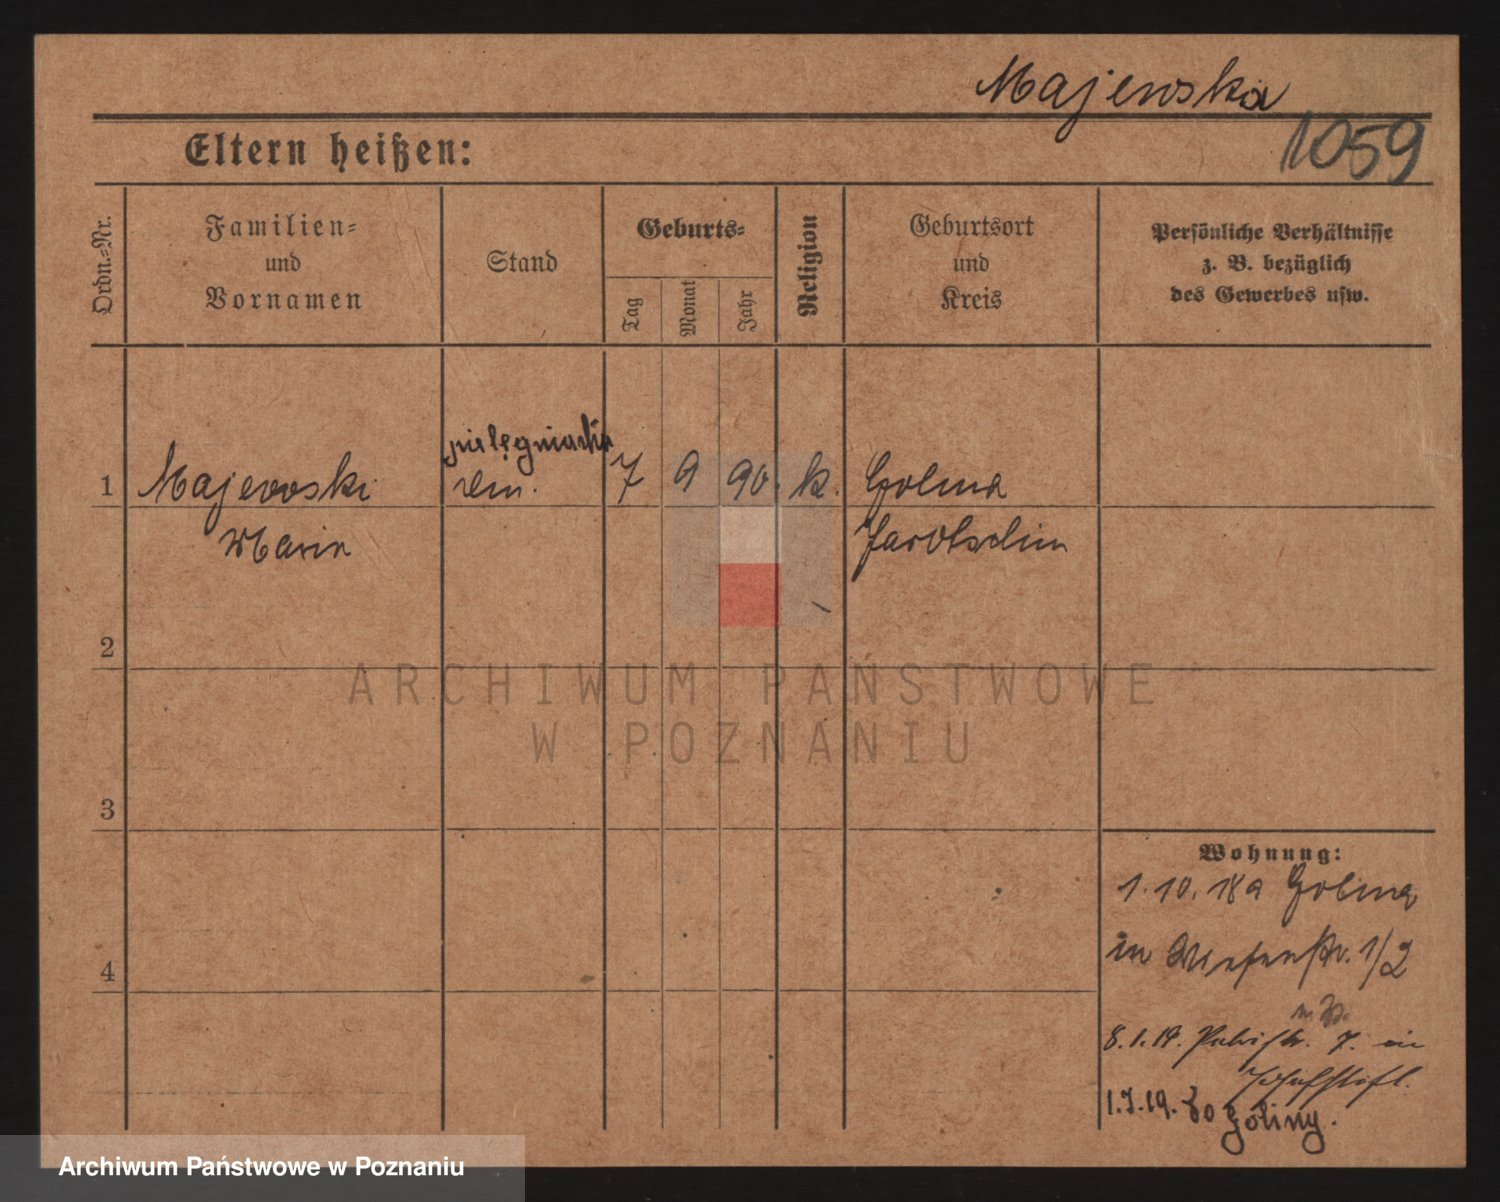 Majewska
1059
Eltern heißen:
Ordn.-Nr.
Familien-
und
Vornamen
Stand
Geburts-
Tag
Monat
Jahr
Religion
Geburtsort
und
Kreis
Persönliche Verhältnisse
z. B. bezüglich
des Gewerbes usw.
pielęgniarka
1 Majewski 7 9 90. k. Golina
Marie Jarotschin
2
ARCHIWUM PAŃSTWOWE
W POZNANIU
3
Wohnung:
1.10.18 a Golina
in Wiesenstr. 1/2
8.1.19. 7. in
Josephstift.
1.7.19. do Goliny.
4
Archiwum Państwowe w Poznaniu